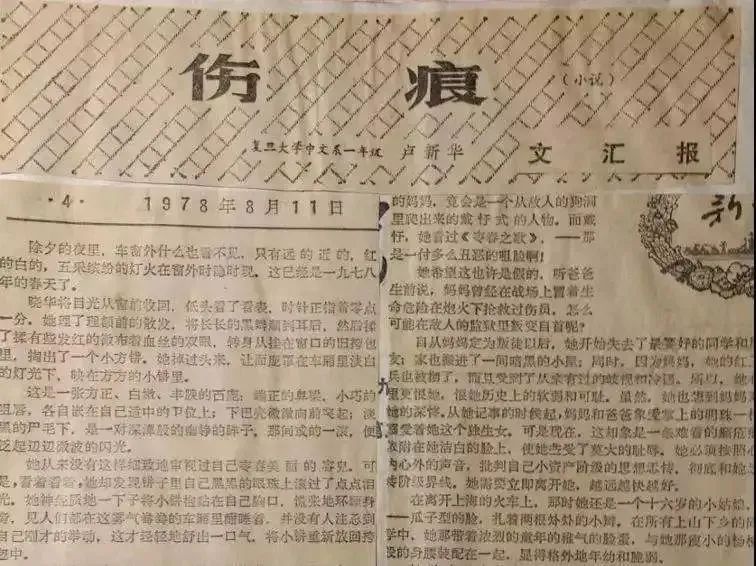 伤痕
（小说）
复旦大学中文系一年级 卢新华
文汇报
·4· 1978年8月11日
除夕的夜里，车窗外什么也看不见，只有远的近的，红
的白的，五采缤纷的灯火在窗外时隐时现。这已经是一九七八
年的春天了。
晓华将目光从窗前收回，低头看了看表，时针正指着零点
一分。她理了理额前的散发，将长长的黑辫顺到耳后，然后揉
了揉有些发红的微布着血丝的双眼，转身从挂在窗口的旧挎包
里，掏出了一个小方镜。她掉过头来，让面庞罩在车厢里淡白
的灯光下，映在方方的小镜里。
这是一张方正、白嫩、丰腴的面庞：端正的鼻梁，小巧的
嘴唇，各自嵌在自己适中的部位上；下巴壳微微向前突起；淡
黑的眉毛下，是一对深潭般的幽静的眸子，那间或的一滚，便
泛起道道微波的闪光。
她从来没有这样细致地审视过自己青春美丽的容貌。可
是，看着看着，她却发现镜子里自己黑黑的眼珠上滚过了点点泪
光。她神经质地一下子将小镜抱贴在自己胸口，慌张地环顾身
旁，见人们都在这雾气腾腾的车厢里酣睡着，并没有人注意到
自己刚才的举动，这才轻轻地舒出一口气，将小镜重新放回挎
包中。
的妈妈，竟会是一个从敌人的狗洞
里爬出来的戴愉式的人物。而戴
愉，她看过《青春之歌》，——那
是一付多么丑恶的嘴脸啊！
她希望这也许是假的，听爸爸
生前说，妈妈曾经在战场上冒着生
命危险在炮火下抢救过伤员，怎么
可能在敌人的监狱里叛变自首呢？
自从妈妈定为叛徒以后，她开始失去了最要好的同学和朋
友；家也搬进了一间暗黑的小屋；同时，因为妈妈，她的红卫
兵也被撤了，而且受到了从未有过的歧视和冷遇。所以，她心
里更恨她，恨她历史上的软弱和可耻。虽然，她也想到妈妈对
她的深情。从她记事的时候起，妈妈和爸爸象爱掌上的明珠一样
溺爱着她这个独生女。可是现在，这却象是一条难看的癞疮疤
依附在她洁白的脸上，使她蒙受了莫大的耻辱。她必须按照心
内心外的声音，批判自己小资产阶级的思想感情，彻底和她划
清阶级界线。她需要立即离开她，越远越快越好。
在离开上海的火车上，那时她还是一个十六岁的小姑娘，
——瓜子型的脸，扎着两根短短的小辫，在所有上山下乡的同
学中，她那带着浓烈的童年的稚气的脸蛋，与她那瘦小的杨柳
般的身腰装配在一起，显得格外地年幼和脆弱。